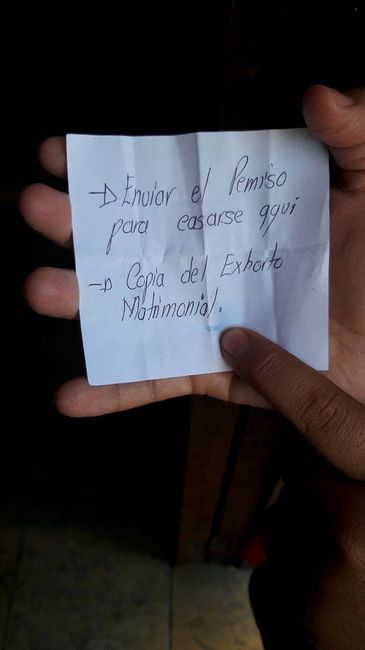 → Enviar el Pemiso
para casarse aqui
→ Copia del Exhorto
Matrimonial.